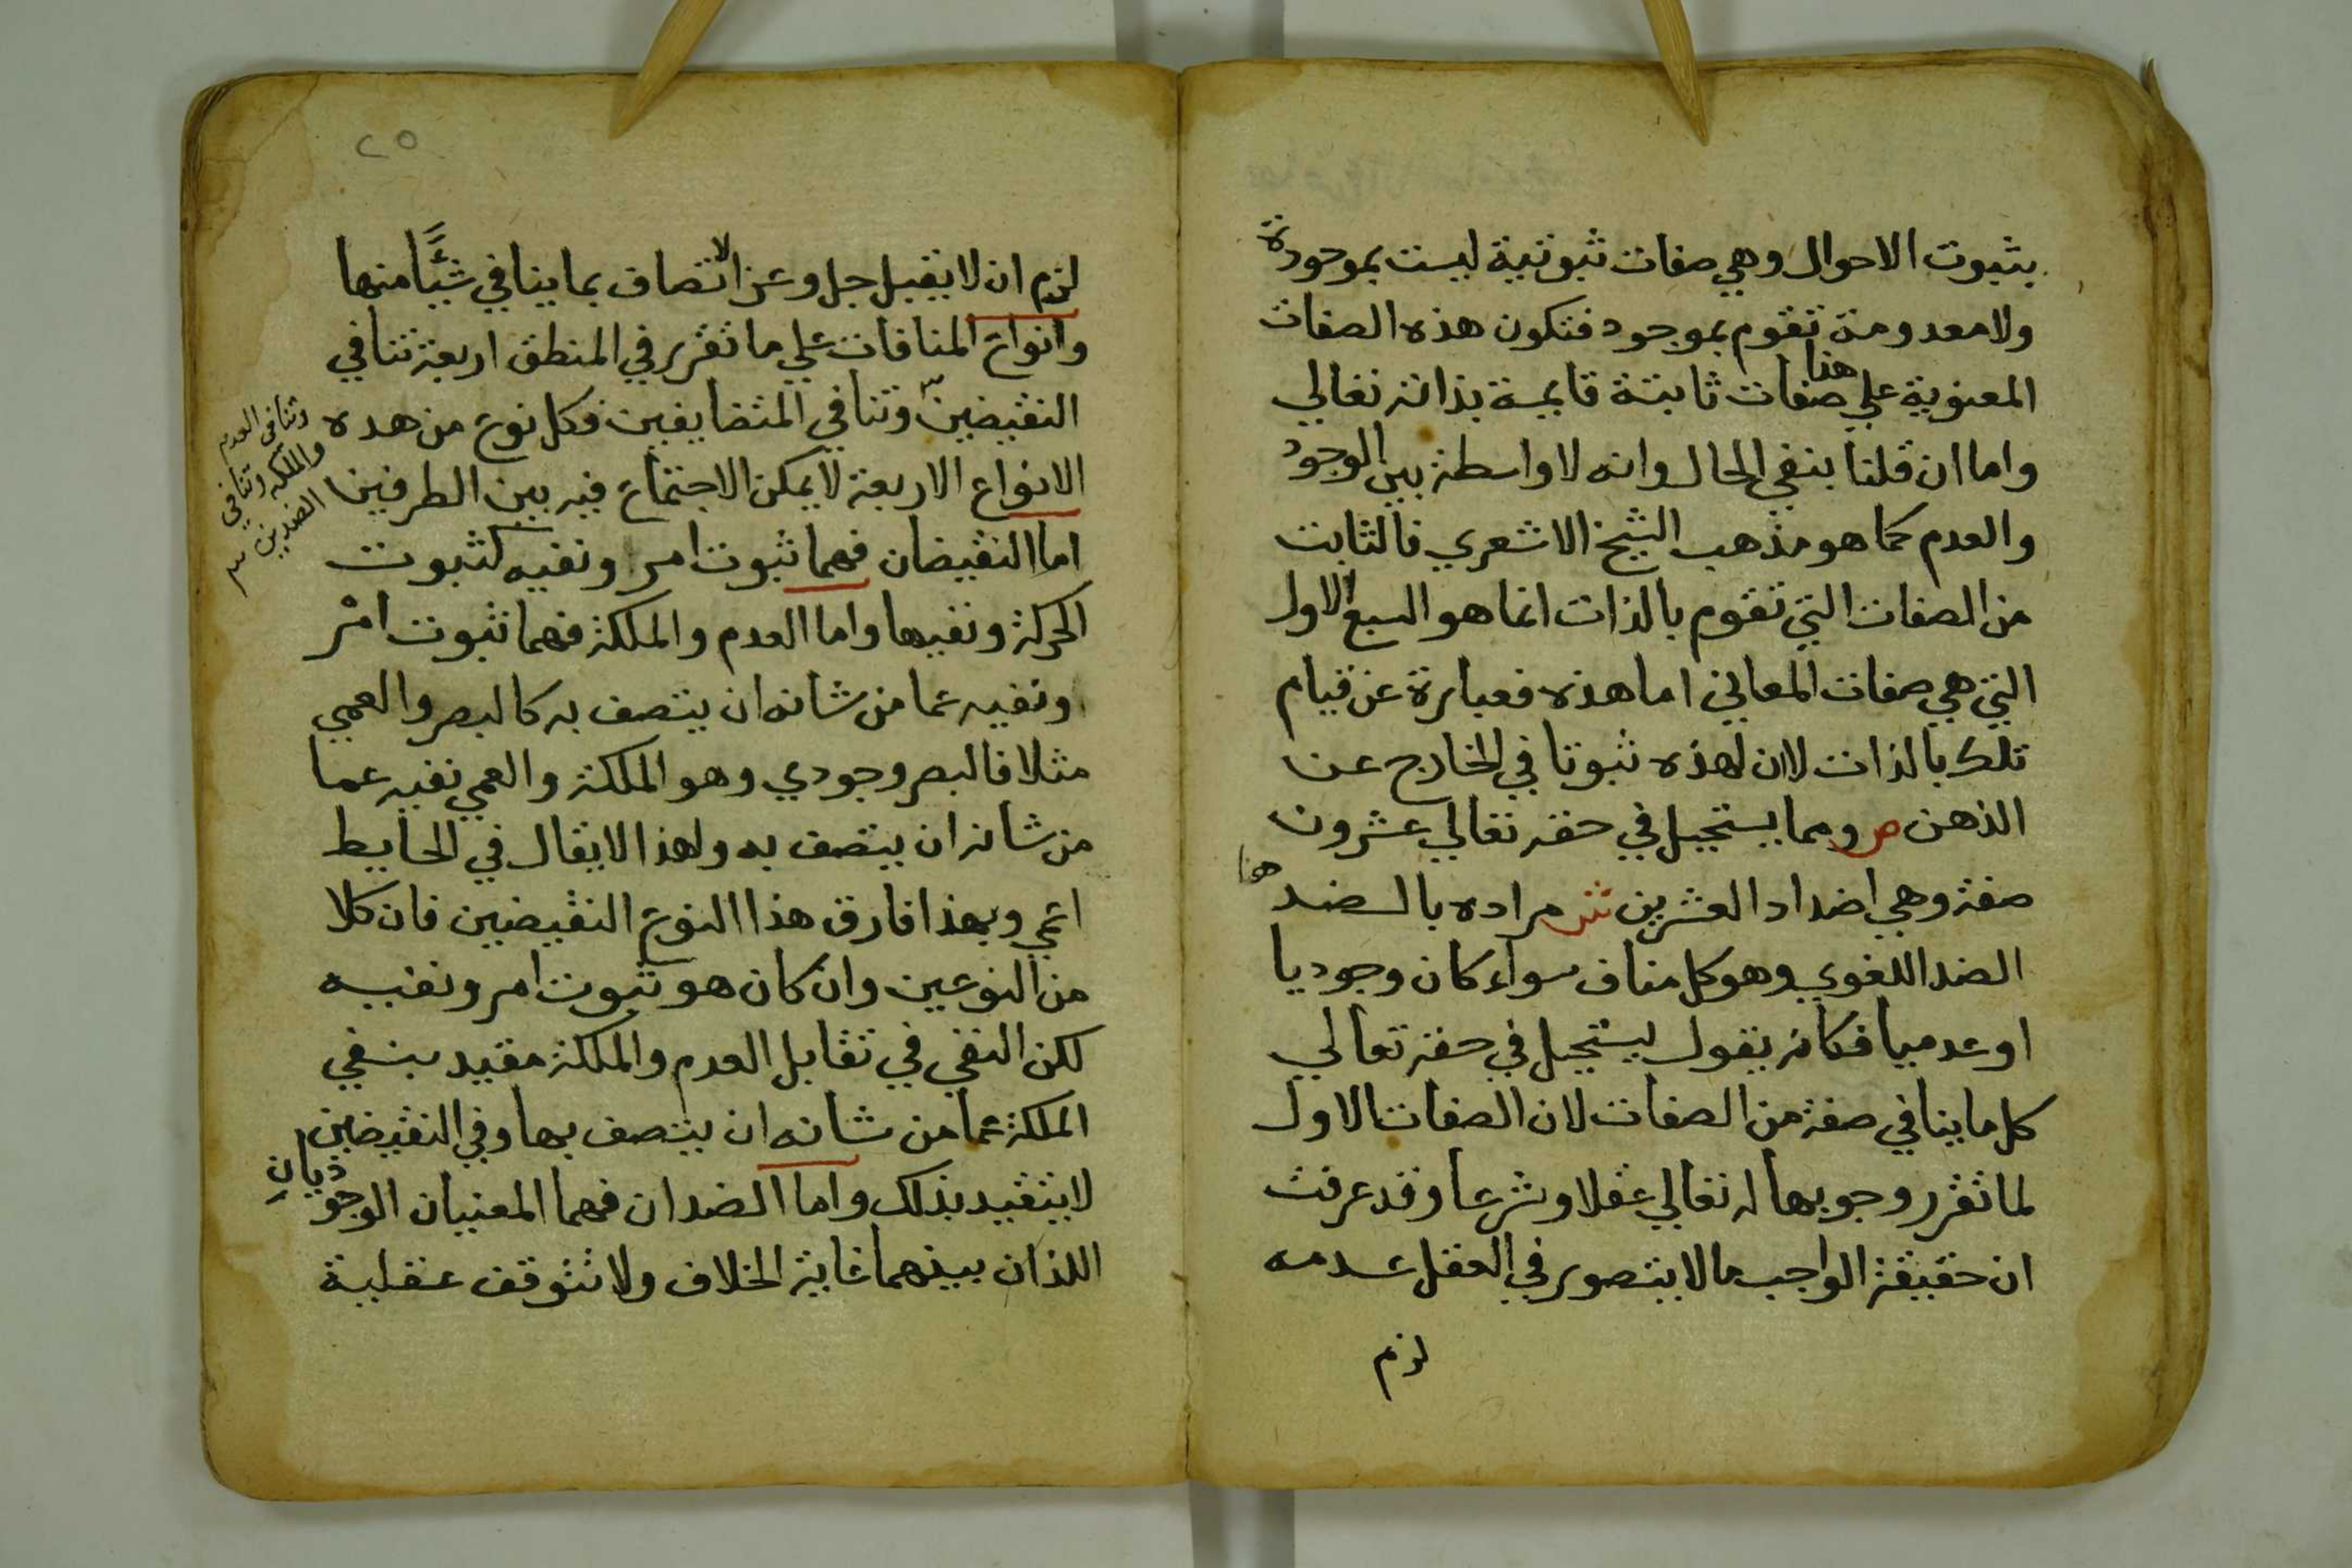 بثبوت الاحوال وهي صفات ثبوتية ليست بموجودة
ولا معدومة تقوم بموجود فتكون هذه الصفات
المعنوية علي هذا صفات ثابتة قايمة بذاته تعالي
واما ان قلنا بنفي الحال وانه لا واسطة بين الوجود
والعدم كما هو مذهب الشيخ الاشعري فالثابت
من الصفات التي تقوم بالذات انما هو السبع الاول
التي هي صفات المعاني اما هذه فعبارة عن قيام
تلك بالذات لا ان لهذه ثبوتا في الخارج عن
الذهن ص ومما يستحيل في حقه تعالي عشرون
صفة وهي اضداد العشرين ش مراده بالضد هنا
الضد اللغوي وهو كل مناف سواء كان وجوديا
او عدميا فكانه يقول يستحيل في حقه تعالي
كل ما ينافي صفة من الصفات لان الصفات الاول
لما تقرر وجوبها له تعالي عقلا وشرعا وقد عرفت
ان حقيقة الواجب ما لا يتصور في العقل عدمه
لزم
٢٥
لزم ان لا يقبل جل وعز الاتصاف بما ينافي شيئا منها
وانواع المنافات علي ما تقرر في المنطق اربعة تنافي
النقيضين وتنافي المتضايفين فكل نوع من هده
وتنافي العدم
والملكه وتنافي
الضدين
الانواع الاربعة لا يمكن الاجتماع فيه بين الطرفين
اما النقيضان فهما ثبوت امر ونفيه كثبوت
الحركة ونفيها واما العدم والملكة فهما ثبوت امر
ونفيه عما من شانه ان يتصف به كالبصر والعمي
مثلا فالبصر وجودي وهو الملكة والعمي نفيه عما
من شانه ان يتصف به ولهذا لا يقال في الحايط
اعمي وبهذا فارق هذا النوع النقيضين فان كلا
من النوعين وان كان هو ثبوت امر ونفيه
لكن النفي في تقابل العدم والملكة مقيد بنفي
الملكة عما من شانه ان يتصف بها وفي النقيضين
لا يتقيد بذلك واما الضدان فهما المعنيان الوجوديان
اللذان بينهما غاية الخلاف ولا تتوقف عقلية